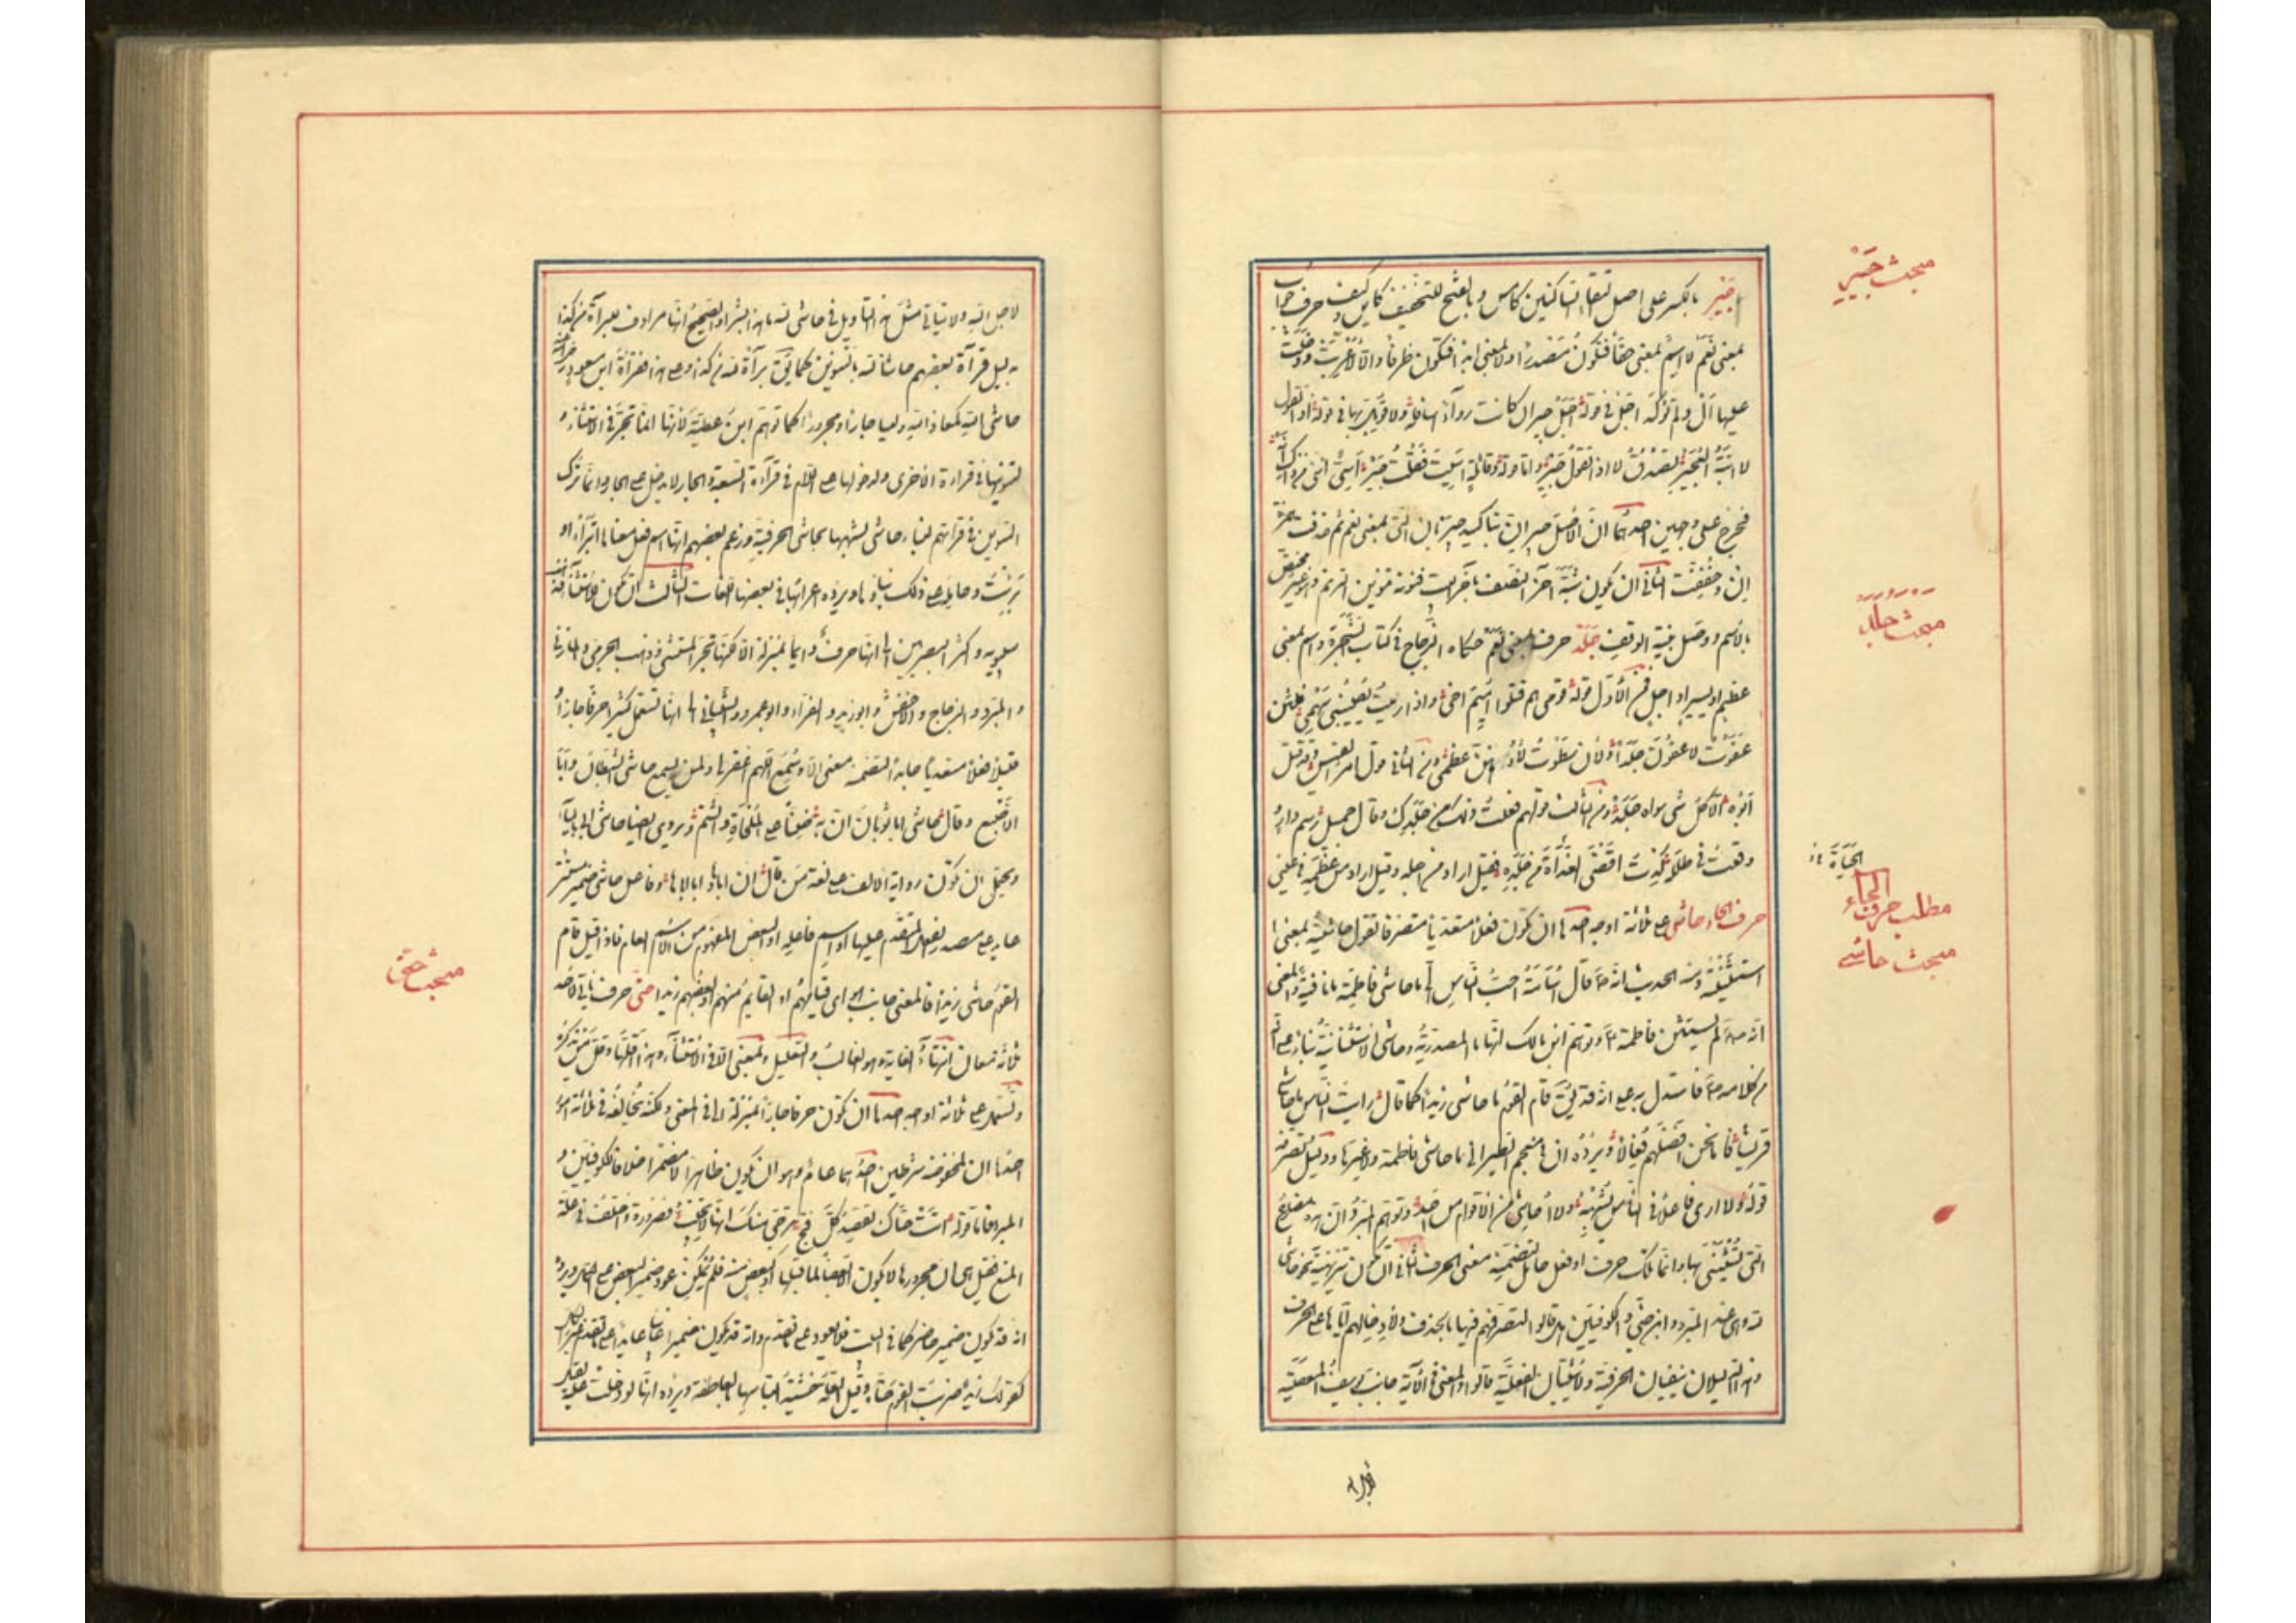 مبحث جَيْرِ
جَيْرِ بالكسر على اصل التقاء الساكنين كامس وبالفتح للتخفيف كاين وكيف حرف جواب
بمعنى نَعَم لا اسم بمعنى حقا فتكون مصدرا ولا بمعنى ابدا فتكون ظرفا والا لاعربت ودخلت
عليها ال ولم تؤكد اجل في قوله اجل جير ان كانت رواء اسافله ولا قوبل بها في قوله اذا تقول
لا ابنة العجير تصدق لا اذا تقول جير واما قوله وقائلة اسيت فقلت جير اسىّ انني من ذاك انه
فخرج على وجهين احدهما ان الاصل جير ان بتاكيد جير بان التي بمعنى نعم ثم حذفت همزة
ان وخففت الثاني ان يكون شبه آخر النصف بآخر البيت فنونه تنوين الترنم وهو غير مختص
بالاسم ووصل بنية الوقف جلل حرف بمعنى نعم حكاه الزجاج في كتاب الشجرة واسم بمعنى
مبحث جلل
عظيم او يسير او اجل فمن الاول قوله قومى هم قتلوا اميم اخى واذا رميت يصيبني سهمى فلئن
عفوت لاعفون جللا ولئن سطوت لاوهنن عظمى ومن الثاني قول امرئ القيس وقد قتل
ابوه الا كل شى سواه جلل ومن الثالث قولهم فعلت ذلك من جللك وقال جميل رسم دار
وقفت في طلله كدت اقضى الغداة من جلله فقيل اراد من اجله وقيل اراد من عظمه في عيني
مطلب حرف الحاء
حرف الحاء حاشى على ثلاثة اوجه احدها ان تكون فعلا متعديا متصرفا تقول حاشيته بمعنى
مبحث حاشى
استثنيته ومنه الحديث انه قال اسامة احب الناس الى ما حاشى فاطمة ما نافية والمعنى
انه لم يستثن فاطمة وتوهم ابن مالك انها ما المصدرية وحاشى الاستثنائية بناء على انه
من كلامه فاستدل به على انه قد يق قام القوم ما حاشى زيدا كما قال رايت الناس ما حاشا
قريشا فانا نحن افضلهم فعالا ويرده ان في معجم الطبراني ما حاشى فاطمة ولا غيرها ودليل تصرفه
قوله ولا ارى فاعلا في الناس يشبهه ولا احاشى من الاقوام من احد وتوهم المبرد ان هذا مضارع
التي يستثنى بها وانما تلك حرف او فعل جامد لتضمنه معنى الحرف الثاني ان تكون تنزيهية نحو حاشى
لله وهي عند المبرد وابن جني والكوفيين فعل قالوا لتصرفهم فيها بالحذف ولادخالهم اياها على الحرف
وهذان الدليلان ينفيان الحرفية ولا يثبتان الفعلية قالوا والمعنى في الآية جانب يوسف المعصية
لاجل الله ولا يتاتى مثل هذا التاويل في حاشى لله ما هذا بشرا والصحيح انها مرادف لبراءة من كذا
بدليل قرآءة بعضهم حاشا لله بالتنوين كما يق برآءة لله من كذا وعلى هذا فقرآءة ابن مسعود
حاشى الله كمعاذ الله وليسا جارا ومجرورا كما توهم ابن عطية لانها انما تجر في الاستثناء و
لتنوينها في قراءة الاخرى ولدخولها على اللام في قرآءة السبعة والجار لا يدخل على الجار وانما ترك
التنوين في قراءتهم لبناء حاشى لشبهها بحاشى الحرفية وزعم بعضهم انها اسم فعل معناها اتبرأ او
برئت وحامله على ذلك بناؤها ويرده اعرابها في بعض اللغات الثالث ان تكون للاستثناء فذهب
سيبويه واكثر البصريين الى انها حرف دائما بمنزلة الا لكنها تجر المستثنى وذهب الجرمى والمازني
والمبرد والزجاج والاخفش وابوزيد والفراء وابوعمرو والشيباني الى انها تستعمل كثيرا حرفا جارا و
قليلا فعلا متعديا جامدا لتضمنه معنى الا وسمع اللهم اغفر لى ولمن يسمع حاشى الشيطان وابا
الاصبع وقال حاشى ابا ثوبان ان به ضنا على الملحاة والشتم ويروى ايضا حاشى ابى بالياء
ويحتمل ان تكون رواية الالف على لغة من قال ان اباها وابا اباها وفاعل حاشى ضمير مستتر
عايد على مصدر الفعل المتقدم عليها او اسم فاعله او البعض المفهوم من الاسم العام فاذا قيل قام
القوم حاشى زيدا فالمعنى جانب هو اى قيامهم او القايم منهم او بعضهم زيدا حتى حرف ياتي لاحد
مبحث حتى
ثلاثة معان انتهاء الغاية وهو الغالب والتعليل وبمعنى الا في الاستثناء وهذا اقلها وقل من يذكره
وتستعمل على ثلاثة اوجه احدها ان تكون حرفا جارا بمنزلة الى في المعنى ولكنه يخالفه في ثلاثة امور
احدها ان لمخفوضه شرطين احدهما عام وهو ان يكون ظاهرا لا مضمرا خلافا للكوفيين و
المبرد فاما قوله اتت حتاك تقصد كل فج ترجى منك انها لا تخيب فضرورة واختلف في علة
المنع فقيل هى ان مجرورها لا يكون الا بعضا لما قبلها او كبعض منه فلم يمكن عود ضمير البعض على الكل ويرده
انه قد يكون ضميرا حاضرا كما في البيت فلا يعود على ما تقدم وانه قد يكون ضميرا غائبا عايدا على ما تقدم غير الكل
كقولك زيد ضربت القوم حتاه وقيل العلة خشية التباسها بالعاطفة ويرده انها لو دخلت عليه لقيل